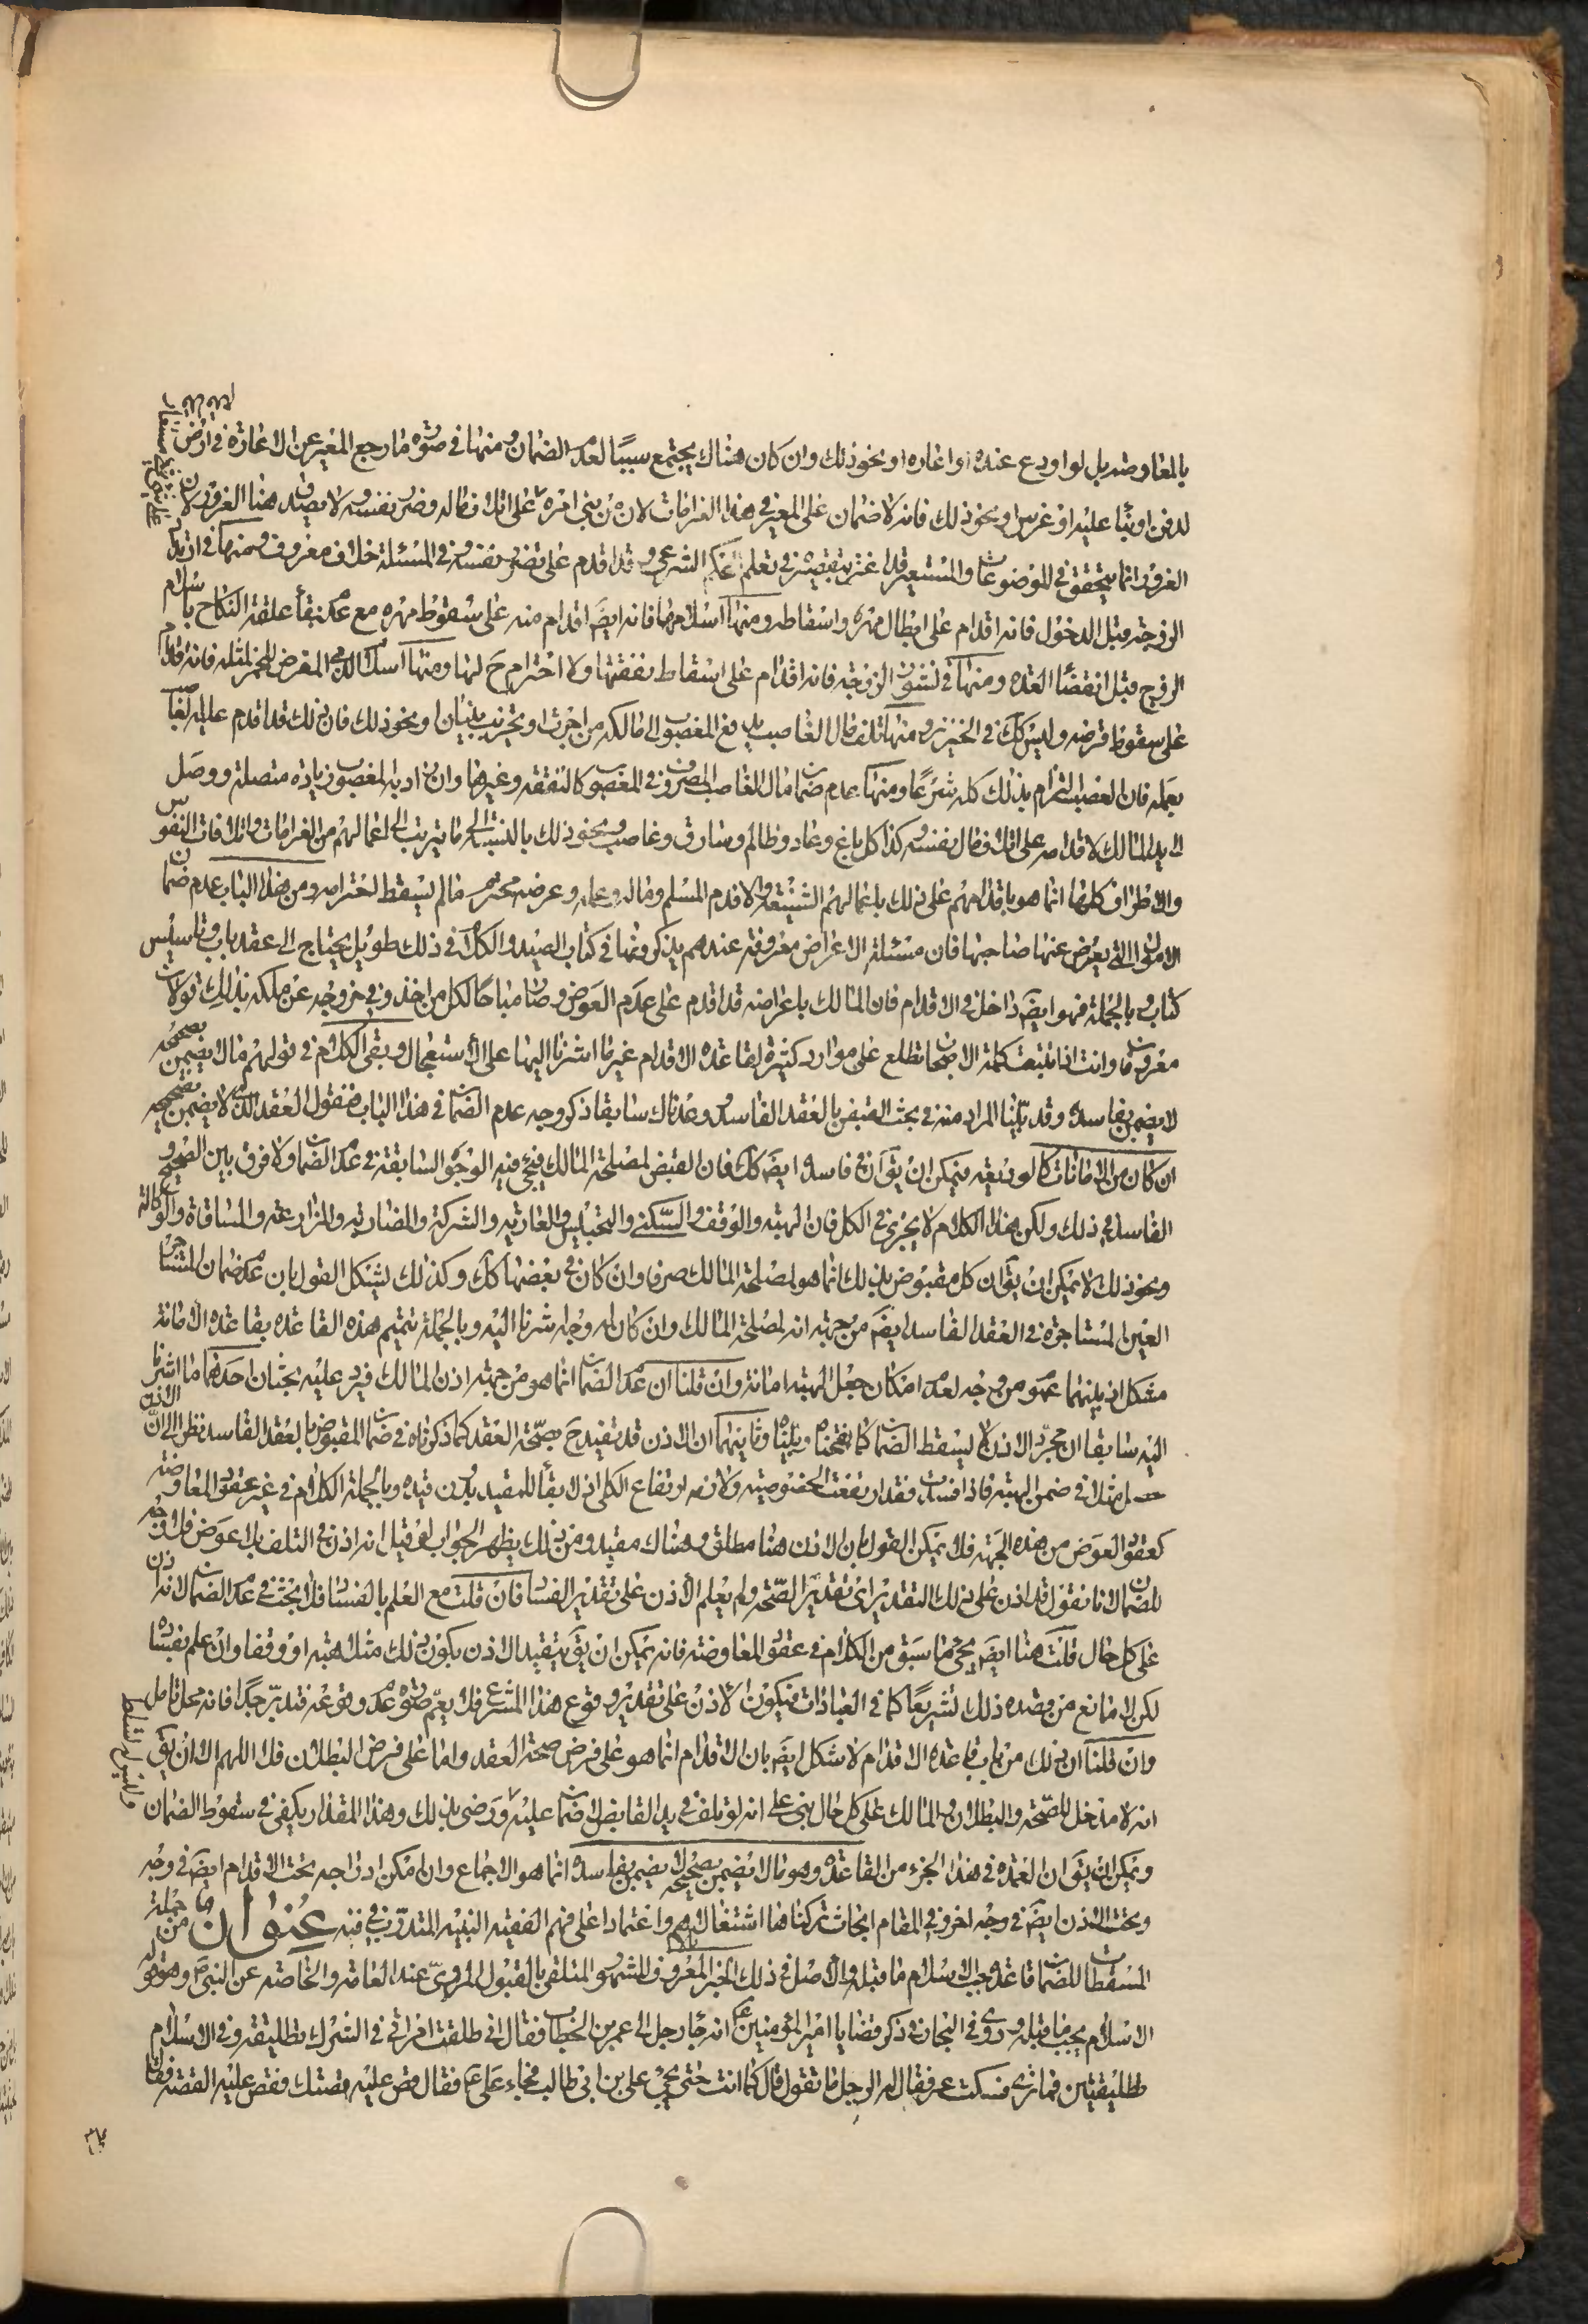 بالمعاوضه بل لو اودع عنده او اعاره او نحو ذلك وان كان هناك يجتمع سببا لعدم الضمان ومنها في صورة ما رجع المعير عن الاعارة في ارض
لدفن او بناء عليه او غرس او نحو ذلك فانه لا ضمان على المعير في هذا الغرامات لانه بنى امره على اتلاف ماله وضرر نفسه ولا يصدق هنا الغرور لان
الغرور انما يتحقق في الموضوعات والمستعير قد اغتر بتقصيره في تعلم الحكم الشرعي وقد اقدم على تضرر نفسه وفي المسئلة خلاف معروف ومنها في ارتداد
الزوجة قبل الدخول فانه اقدام على ابطال مهره واسقاطه ومنها اسلامها فانه ايضَ اقدام منه على سقوط مهره مع عدم بقاء علقة النكاح باسلام
الزوج قبل انقضاء العده ومنها في نشوز الزوجة فانه اقدام على اسقاط نفقتها ولا احترام حَ لها ومنها اسلام الذمي المقرض للخمر لمثله فانه اقدام
على سقوط قرضه وليس كَكَ في الخنزير ومنها تلف مال الغاصب بدفع المغصوب الى مالكه من اجرة او تخريب بنيان او نحو ذلك فان ذلك قد اقدم عليه الغاصب
بعمله فان الغصب التزام بذلك كله شرعا ومنها عدم ضمان مال الغاصب المصروف في المغصوب كالنفقة وغيرها وان زاد به المغصوب زيادة متصلة ووصل
الى يد المالك لاقدامه على اتلاف مال نفسه وكذا كل باغ وعاد وظالم وسارق وغاصب ونحو ذلك بالنسبة الى ما يترتب الى اعمالهم من الغرامات واتلافات النفوس
والاطراف كلها انما هو باقدامهم على ذلك باعمالهم الشنيعة والا فدم المسلم وماله وعمله وعرضه محترم ما لم يسقط احترامه ومن هذا الباب عدم ضمان
الاموال التي يعرض عنها صاحبها فان مسئلة الاعراض معروفة عندهم يذكرونها في كتاب الصيد والكلام في ذلك طويل يحتاج الى عقد باب وتاسيس
كتاب وبالجملة فهو ايضَ داخل في الاقدام فان المالك باعراضه قد اقدم على عدم العوض وصار مباحا لكل من اخذ وفي خروجه عن ملكه بذلك قولان
معروفان وانت اذا تتبعت كلمة الاصحاب تطلع على موارد كثيرة لقاعده الاقدام غير ما اشرنا اليها على الاستعجال وبقى الكلام في قولهم مالا يضمن بصحيحه
لا يضمن بفاسده وقد بينا المراد منه في بحث القبض بالعقد الفاسد ووعدناك سابقا ذكر وجه عدم الضمان في هذا الباب فنقول العقد الذي لا يضمن بصحيحه
ان كان من الامانات كالوديعه فيمكن ان يقَ ان في فاسده ايضَ كَكَ فان القبض لمصلحة المالك فيجئ فيه الوجوه السابقة في عدم الضمان ولا فرق بين الصحيح و
الفاسد في ذلك ولكن هذا الكلام لا يجرى في الكل فان الهبة والوقف والسكنى والتحبيس والعارية والشركة والمضاربة والمزارعة والمساقاة والوكالة
ونحو ذلك لا يمكن ان يقَ ان كل مقبوض بذلك انما هو لمصلحة المالك صرفا وان كان في بعضها كَكَ وكذلك يشكل القول بان عدم ضمان المستاجر
العين المستاجرة في العقد الفاسد ايضَ من جهة انه لمصلحة المالك وان كان له وجه اشرنا اليه وبالجملة تتميم هذه القاعده بقاعدة الامانة
مشكل اذ بينهما عموم من وجه لعدم امكان جعل الهبة امانة وان قلنا ان عدم الضمان انما هو من جهة اذن المالك فيرد عليه بحثان احدهما ما اشرنا
اليه سابقا ان مجرد الاذن لا يسقط الضمان كما نقحناه وبيناه وثانيهما ان الاذن قد تقيد حَ بصحة العقد كما ذكرناه في ضمان المقبوض بالعقد الفاسد نظرا الى ان الاذن
حصل مثلا في ضمن الهبة فاذا فسدت فقد ارتفعت الخصوصية ولازمه ارتفاع الكل اذ لا بقاء للمقيد بدون قيده وبالجملة الكلام في غير عقود المعاوضه
كعقود العوض من هذه الجهة فلا يمكن القول بان الاذن هنا مطلق وهناك مقيد ومن ذلك يظهر الجواب لو قيل انه اذن في التلف بلا عوض فلا وجه
للضمان لانا نقول قد اذن على ذلك التقدير اى تقدير الصحة ولم يعلم الاذن على تقدير الفساد فان قلت مع العلم بالفساد فلا بحث في عدم الضمان لانه اذن
على كل حال قلت هنا ايضَ يجئ ما سبق من الكلام في عقود المعاوضة فانه يمكن ان يقَ بتقييد الاذن بكون ذلك مثلا هبة او وقفا وان علم بفساده
لكن لا مانع من قصده ذلك تشريعا كما في العبادات فيكون الاذن على تقدير وقوع هذا المشرع فلا يعم صورة عدم وقوعه فتدبر جدا فانه محل تامل
وان قلنا ان ذلك من باب قاعدة الاقدام لاشكل ايضَ بان الاقدام انما هو على فرض صحة العقد واما على فرض البطلان فلا اللهم الا ان يقَ
انه لا مدخل للصحة والبطلان والمالك على كل حال بنى على انه لو تلف في يد القابض لا ضمان عليه ورضى بذلك وهذا المقدار يكفى في سقوط الضمان
ويمكن ان يقَ ان العمده في هذا الجزء من القاعدة وهو مالا يضمن بصحيحه لا يضمن بفاسده انما هو الاجماع وان امكن ادراجه تحت الاقدام ايضَ في وجه
وتحت الاذن ايضَ في وجه اخر وفي المقام ابحاث تركناها اشتغالا بالاهم واعتمادا على فهم الفقيه النبيه المتدرب في فنه عنوان من جملة
المسقطات للضمان قاعدة جب الاسلام ما قبله والاصل في ذلك الخبر المعروف المشهور المتلقى بالقبول المروى عند العامة والخاصة عن النبي ص وهو قوله
الاسلام يجب ما قبله وروى في البحار في ذكر قضايا امير المؤمنين ع انه جاء رجل الى عمر بن الخطاب فقال انى طلقت امراتى في الشرك تطليقة وفي الاسلام
تطليقتين فما ترى فسكت عمر فقال له الرجل ما تقول قال كما انت حتى يجئ على بن ابي طالب فجاء على ع فقال قص عليه قصتك فقص عليه القصة فقال